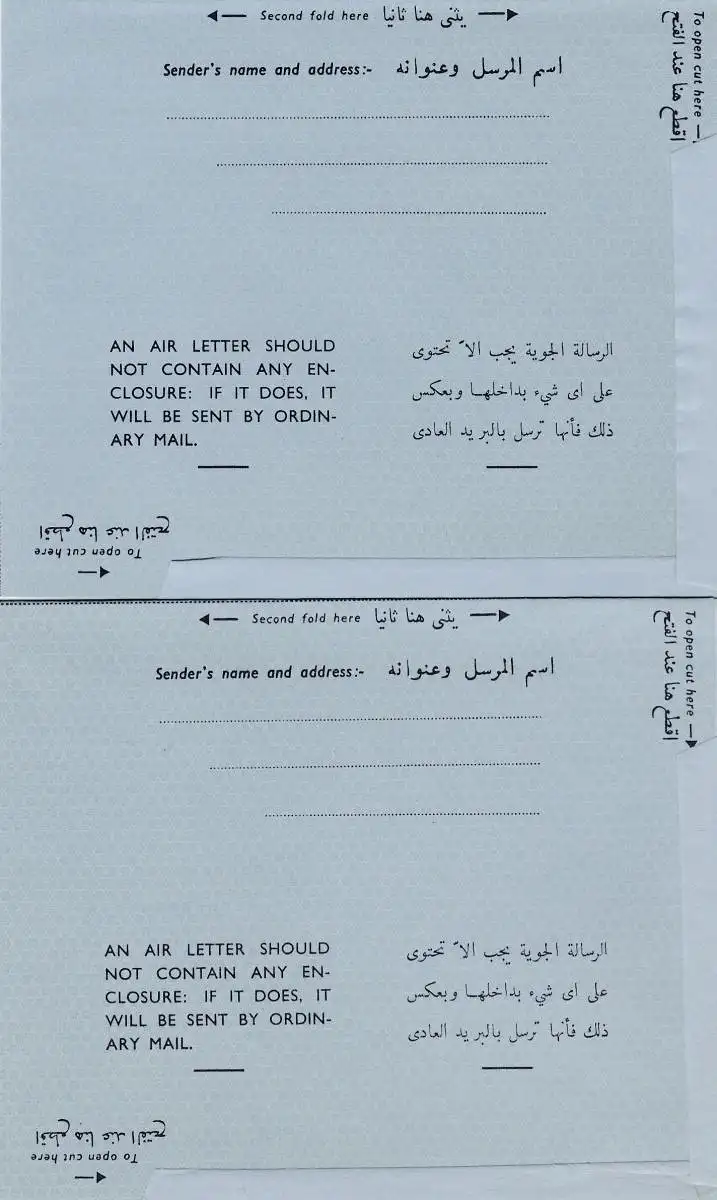 Second fold here يثنى هنا ثانيا
To open cut here
اقطع هنا عند الفتح
Sender's name and address:- اسم المرسل وعنوانه
AN AIR LETTER SHOULD
NOT CONTAIN ANY EN-
CLOSURE: IF IT DOES, IT
WILL BE SENT BY ORDIN-
ARY MAIL.
الرسالة الجوية يجب الاّ تحتوى
على اى شيء بداخلهـا وبعكس
ذلك فأنها ترسل بالبريد العادى
اقطع هنا عند الفتح
To open cut here
Second fold here يثنى هنا ثانيا
To open cut here
اقطع هنا عند الفتح
Sender's name and address:- اسم المرسل وعنوانه
AN AIR LETTER SHOULD
NOT CONTAIN ANY EN-
CLOSURE: IF IT DOES, IT
WILL BE SENT BY ORDIN-
ARY MAIL.
الرسالة الجوية يجب الاّ تحتوى
على اى شيء بداخلهـا وبعكس
ذلك فأنها ترسل بالبريد العادى
اقطع هنا عند الفتح
To open cut here